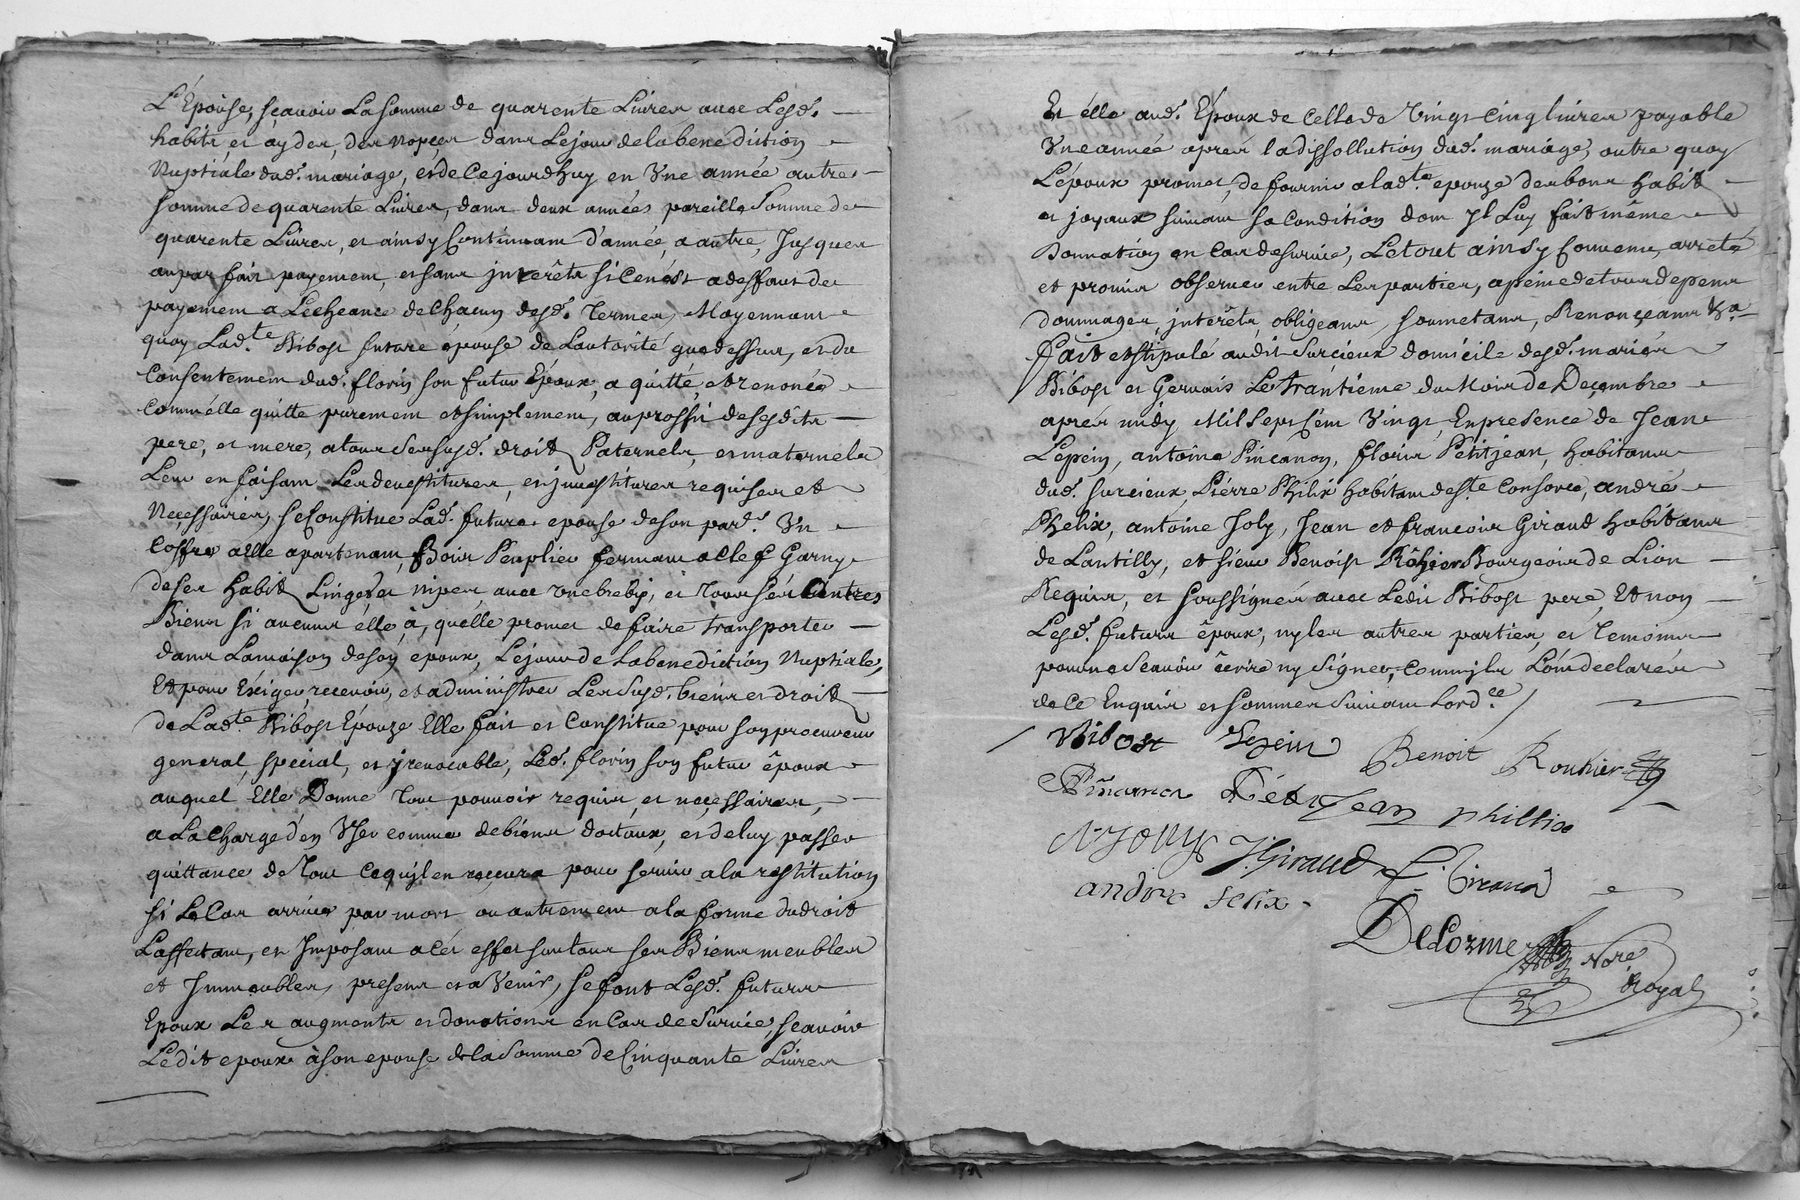 L'Epouse, scavoir La somme de quarente Livres avec Lesd.
habits, et aydes, des nopces dans Le jour de la benediction
Nuptiale dud. mariage, et de Ce jourdhuy en Une année autre
somme de quarente Livres, dans deux années pareille Somme de
quarente Livres, et ainsy Continuant d'année, a autre, Jusques
au parfait payement, et sans interêts si ce nest a deffaut de
payement a L'echeance de Chacun desd. Termes, Moyennant
quoy Ladte. Ribost future épouse de Lautorité que dessus, et du
Consentement dud. florin son futur Epoux, a quitté, et renoncé
Comme elle quitte purement et simplement, au proffit de sesdits
pere, et mere, a tous Ses susd. droits Paternels, et maternels
Leur en faisant Les devestitures, et investitures requises et
Necessaires, se Constitue Lad. future epouse de son pard. Un
Coffre a Elle apartenant, Bois Peuplier fermant a Clef Garny
de ses habits Linges et nipes, avec une brebis, et Tous ses autres
Biens si aucuns elle à, quelle promet de faire transporter
dans La maison de son epoux, Le jour de La benediction Nuptiale,
Et pour Exiger, recevoir, et administrer Les susd. biens et droits
de Ladte. Ribost Epouze Elle fait et Constitue pour son procureur
general, special, et irrevocable, Led. florin son futur êpoux
auquel Elle Donne Tout pouvoir requis, et necessaires,
a La charge d'en User comme de biens dotaux, et de luy passer
quittance de Tout Ce quil en recevra pour servir a la restitution
si Le Cas arrive par mort ou autrement a la forme du droit
L'affectant, et Imposant a cet effet sur tous ses Biens meubles
et Immeubles, presens et a Venir, se font Lesd. futurs
Epoux Les augments et donations en Cas de Survie, scavoir
Ledit epoux à son epouse de la Somme de Cinquante Livres
Et elle aud. Epoux de Celle de Vingt Cinq livres payable
Une année apres la dissollution dud. mariage, outre quoy
L'époux promet, de fournir a ladte. epouze des bons habits
et joyaux suivant sa Condition dont Jl Luy fait même
Donnation en Cas de survie, Le tout ainsy Convenu, arreté
et promis observer entre Les parties, a peine de tous depens
dommages, interêts, obligeans, soumetans, Renonceans &a.
Fait et stipulé audit Surcieux domicile desd. mariés
Ribost et Gervais Le trantieme du Mois de Decembre
apres midy Mil Sept Cent Vingt, En presence de Jean
Lepein, antoine Pincanon, florin Petitjean, habitans
dud. surcieux, Piérre Philix habitant de ste. Consorce, andré
Phelix, antoine Joly, Jean et francois Giraud habitans
de Lantilly, et sieur Benoist Rôhier Bourgeois de Lion
Requis, et soussignés avec Ledit Ribost pere, Et non
Lesd. futurs êpoux, ny les autres parties, et Temoins
pour ne scavoir êcrire ny signer, Comme ils L'ont declarés
de Ce Enquis et sommés suivant Lordce.
Ribost Lepein Benoit Rouhier
Petitjean phillix
A Jolly J. Giraud f. Giraud
andre felix
Delorme Nore.
Royal